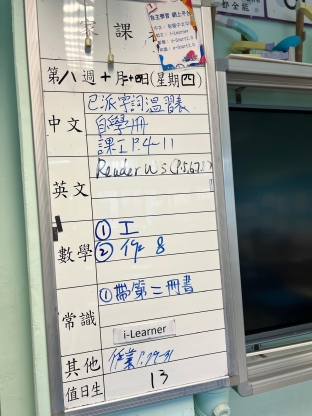 家課
自主學習 網上平台
i-Learner
第八週 十月二十四日(星期四)
中文
已派字詞溫習表
自學冊
課工 P.4-11
英文
Reader Ws (P.5,6,7,8)
數學
① 工
② 作 8
常識
① 帶第二冊書
i-Learner
其他
作業 P.29-31
值日生
13